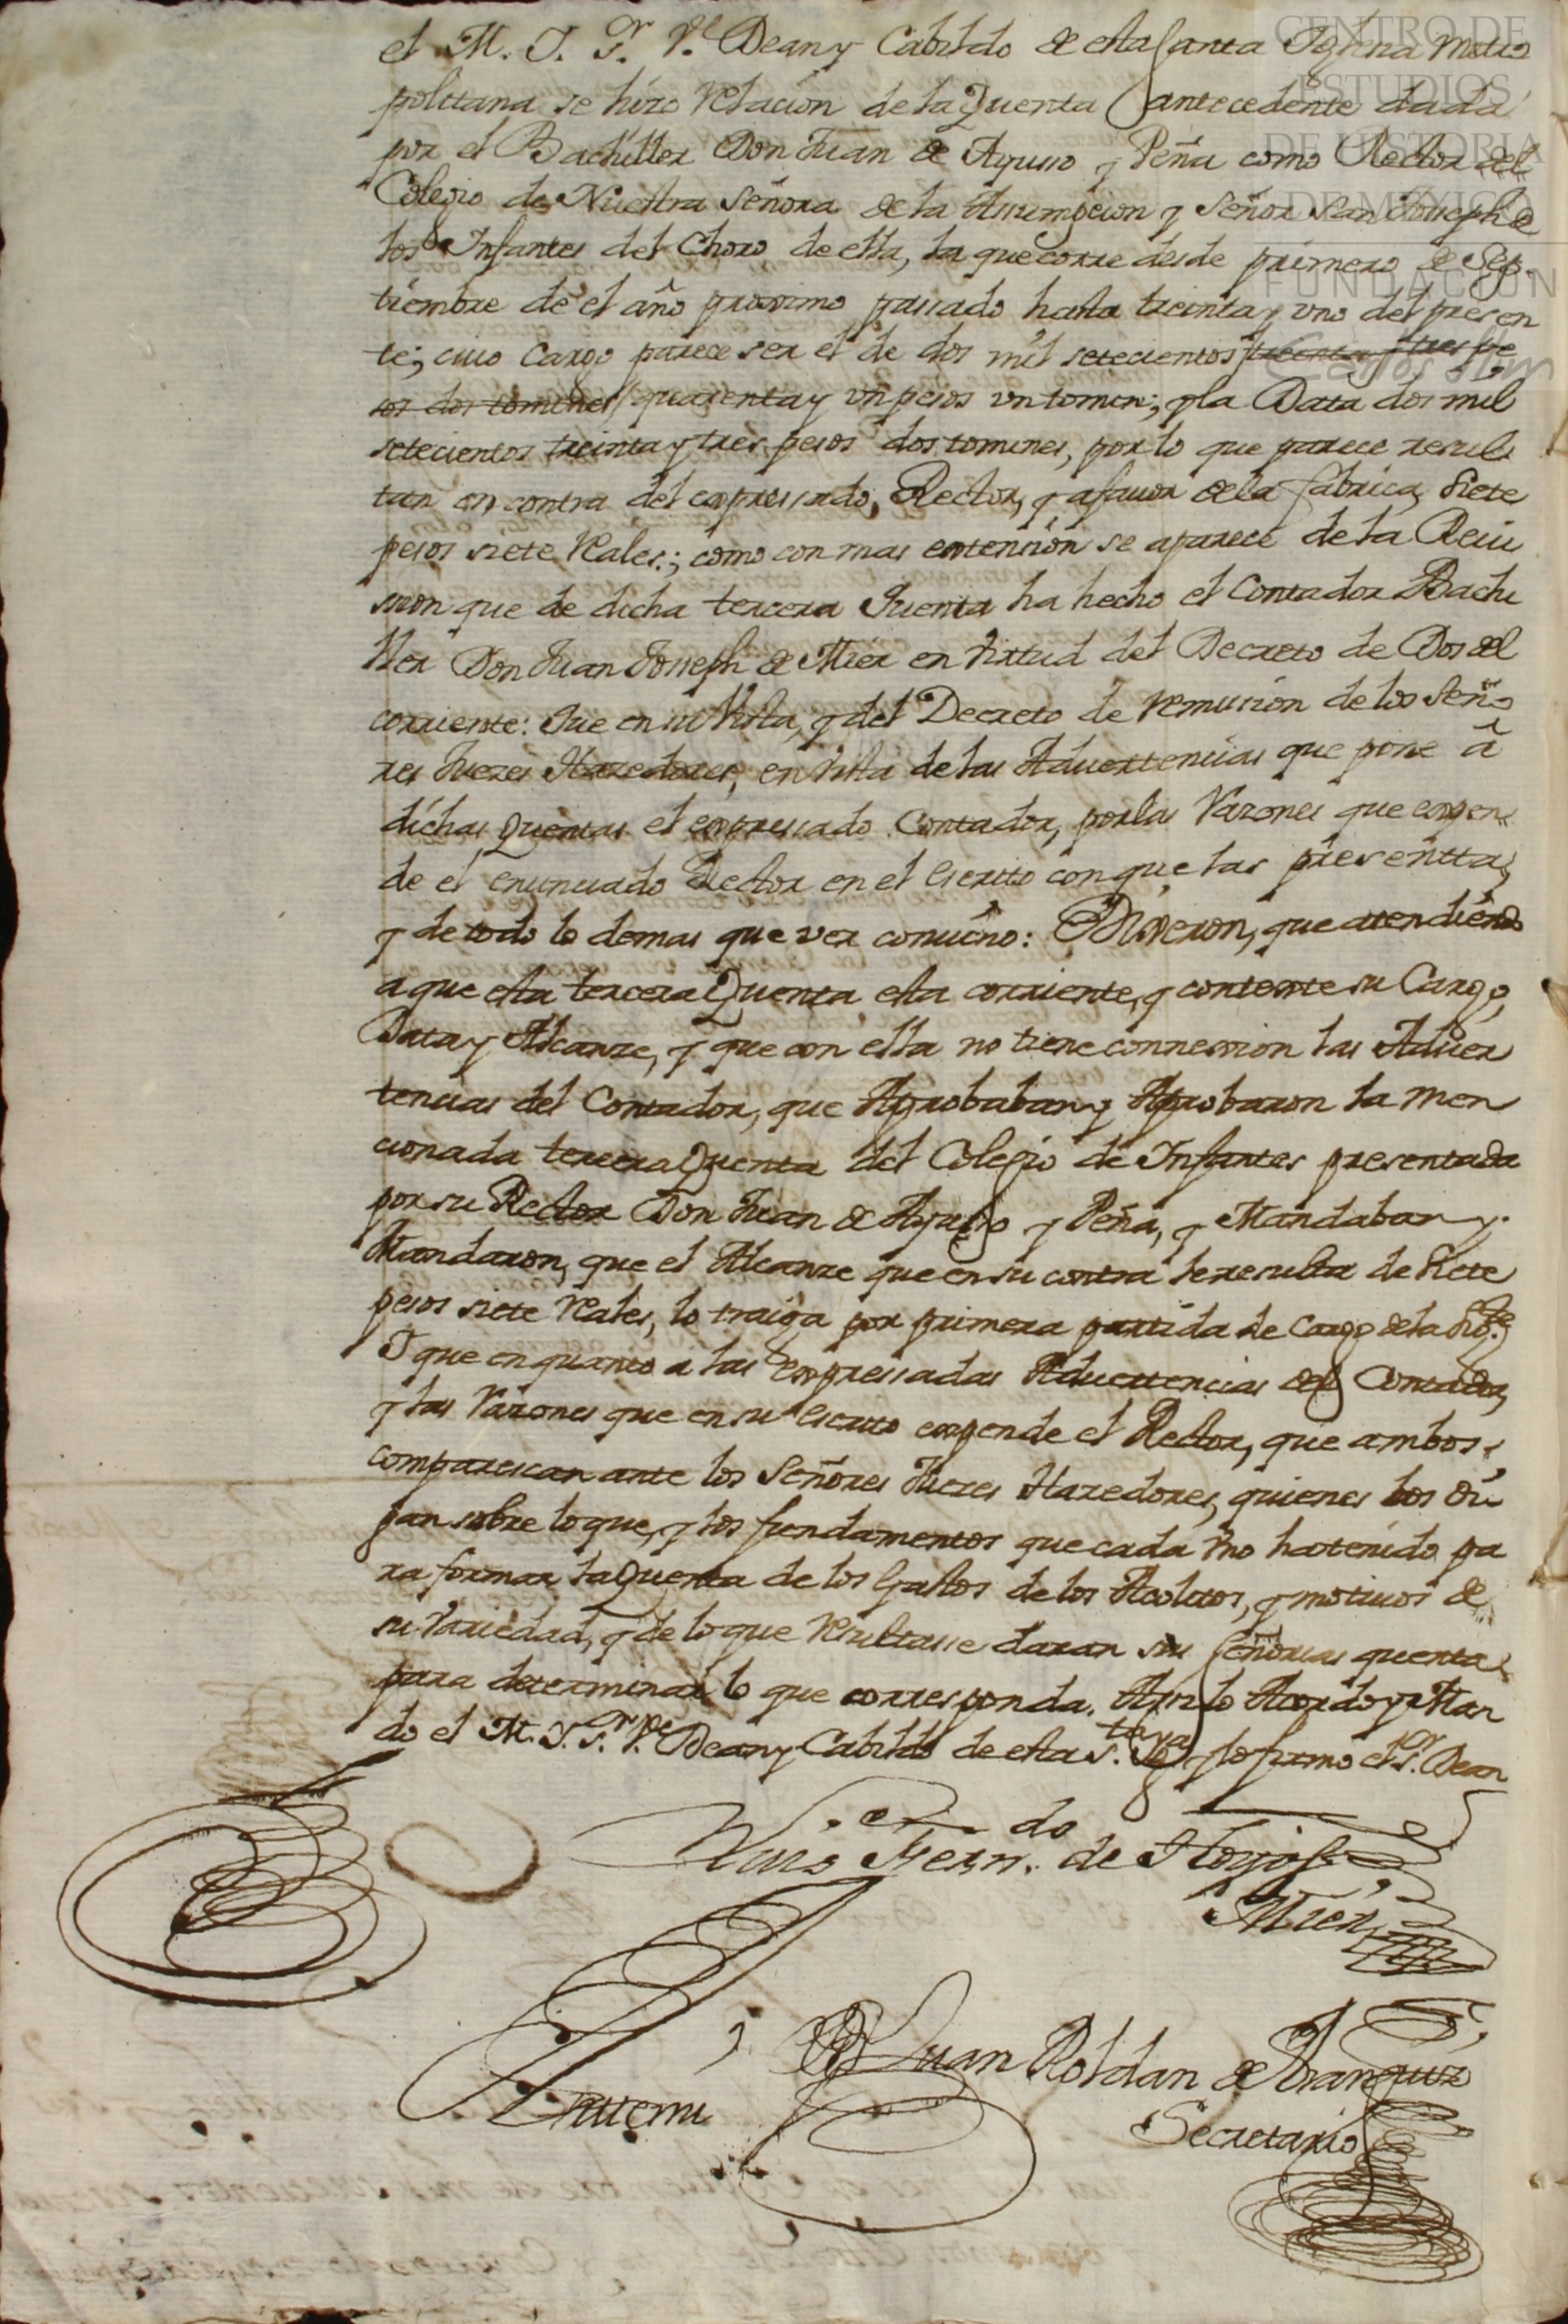 el M. I. S.r V.e Dean y Cabildo de esta Santa Iglesia Metro
politana se hizo Relacion de la Quenta antecedente dada
por el Bachiller Don Juan de Ayuso y Peña como Rector del
Colegio de Nuestra Señora de la Assumpcion y Señor San Joseph de
los Infantes del Choro de ella, la que corre desde primero de Sep-
tiembre de el año proximo passado hasta treinta y uno del presen
te; cuio Cargo parece ser el de dos mil setecientos treinta y tres pe
sos dos tomines quarenta y un pesos un tomin; y la Data dos mil
setecientos treinta y tres pesos dos tomines, por lo que parece resul
tar en contra del expressado Rector, y a favor de la fabrica, siete
pesos siete Reales; como con mas extension se aparece de la Reui
sion que de dicha tercera Quenta ha hecho el Contador Bachi
ller Don Juan Joseph de Mier en virtud del Decreto de Dos del
corriente: Que en su Vista, y del Decreto de remission de los Seño
res Juezes Hazedores, en vista de las Aduertencias que pone â
dichas Quentas el expressado Contador, por las Razones que expen
de el enunciado Rector en el Escrito con que las presentta,
y de todo lo demas que ver convino: Dixeron, que attendiendo
a que esta tercera Quenta esta corriente, y contexte su Cargo,
Data y Alcanze, y que con ella no tiene connexion las Aduer
tencias del Contador, que Aprobaban y Aprobaron la men
cionada tercera Quenta del Colegio de Infantes presentada
por su Rector Don Juan de Ayuso y Peña, y Mandaban y
Mandaron, que el Alcanze que en su contra le resulta de siete
pesos siete Reales, lo traiga por primera partida de Cargo de la Sig.te
Y que en quanto a las expressadas Aduertencias del Contador,
y las Razones que en su Escrito expende el Rector, que ambos
comparescan ante los Señores Juezes Hazedores, quienes los oi
gan sobre lo que, y los fundamentos que cada uno ha tenido pa
ra formar la Quenta de los Gastos de los Acolitos, y motivos de
su Variedad, y de lo que resultasse daran sus Señorias quenta
para determinar lo que corresponda. Assi lo Acordo y Man
do el M. I. S.r V.e Dean y Cabildo de esta S.ta Ig.a y lo firmo el S.or Dean
Luis Fern.do de Hoyos
Mier
Antemi
Br Juan Roldan de Aranguiz
Secretario
CENTRO DE
ESTUDIOS
DE HISTORIA
DE MEXICO
FUNDACIÓN
Carlos Slim